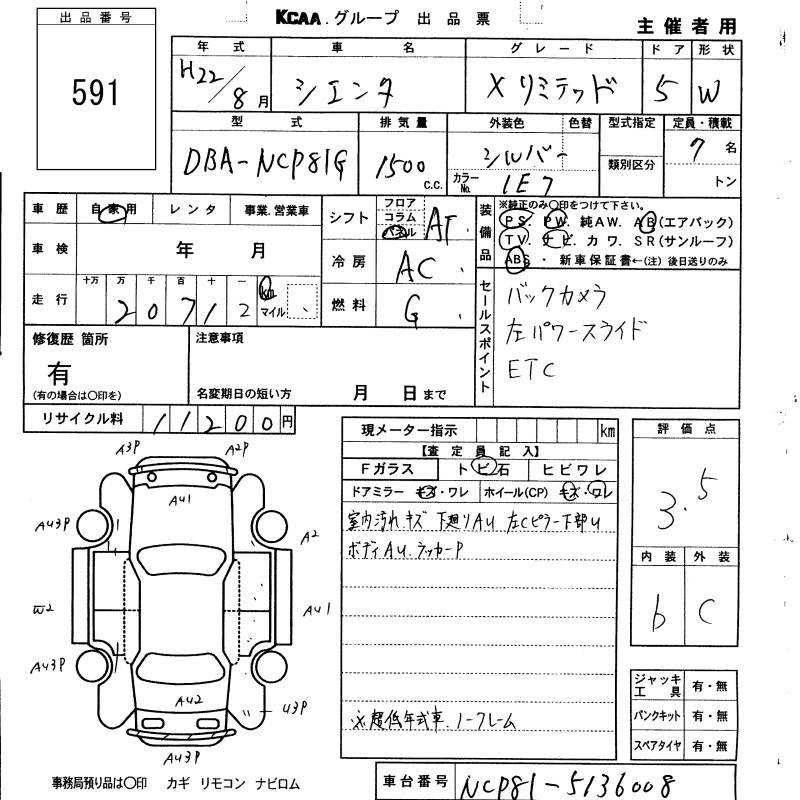 KCAA.グループ 出品票
主催者用
出品番号
591
年式 車名 グレード ドア 形状
H22/8月 シエンタ Xリミテッド 5 W
型式 排気量 外装色 色替 型式指定 定員・積載
DBA-NCP81G 1500 c.c. シルバー 7名
カラーNo. 1E7 類別区分 トン
車歴 自家用 レンタ 事業.営業車
車検 年 月
走行 十万 万 千 百 十 一 km マイル
2 0 7 1 2
シフト フロア コラム パネル AT
冷房 AC
燃料 G
装備品
※純正のみ○印をつけて下さい。
PS. PW. 純AW. AB(エアバック)
TV. ナビ. カワ. SR(サンルーフ)
ABS ・ 新車保証書←(注)後日送りのみ
セールスポイント
バックカメラ
左パワースライド
ETC
修復歴 箇所
有
(有の場合は○印を)
注意事項
名変期日の短い方 月 日まで
リサイクル料 11200円
現メーター指示 km
【査定員記入】
Fガラス トビ石 ヒビワレ
ドアミラー キズ・ワレ ホイール(CP) キズ・ワレ
室内汚れ キズ 下廻りAU 左Cピラー下部U
ボディAU.ラッカーP
※超低年式車 ノークレーム
評価点
3.5
内装 外装
b C
ジャッキ工具 有・無
パンクキット 有・無
スペアタイヤ 有・無
A3P A2P
AU1
AU3P A2
W2 AU1
AU3P
AU2 U3P
AU3P
事務局預り品は○印 カギ リモコン ナビロム
車台番号 NCP81-5136008